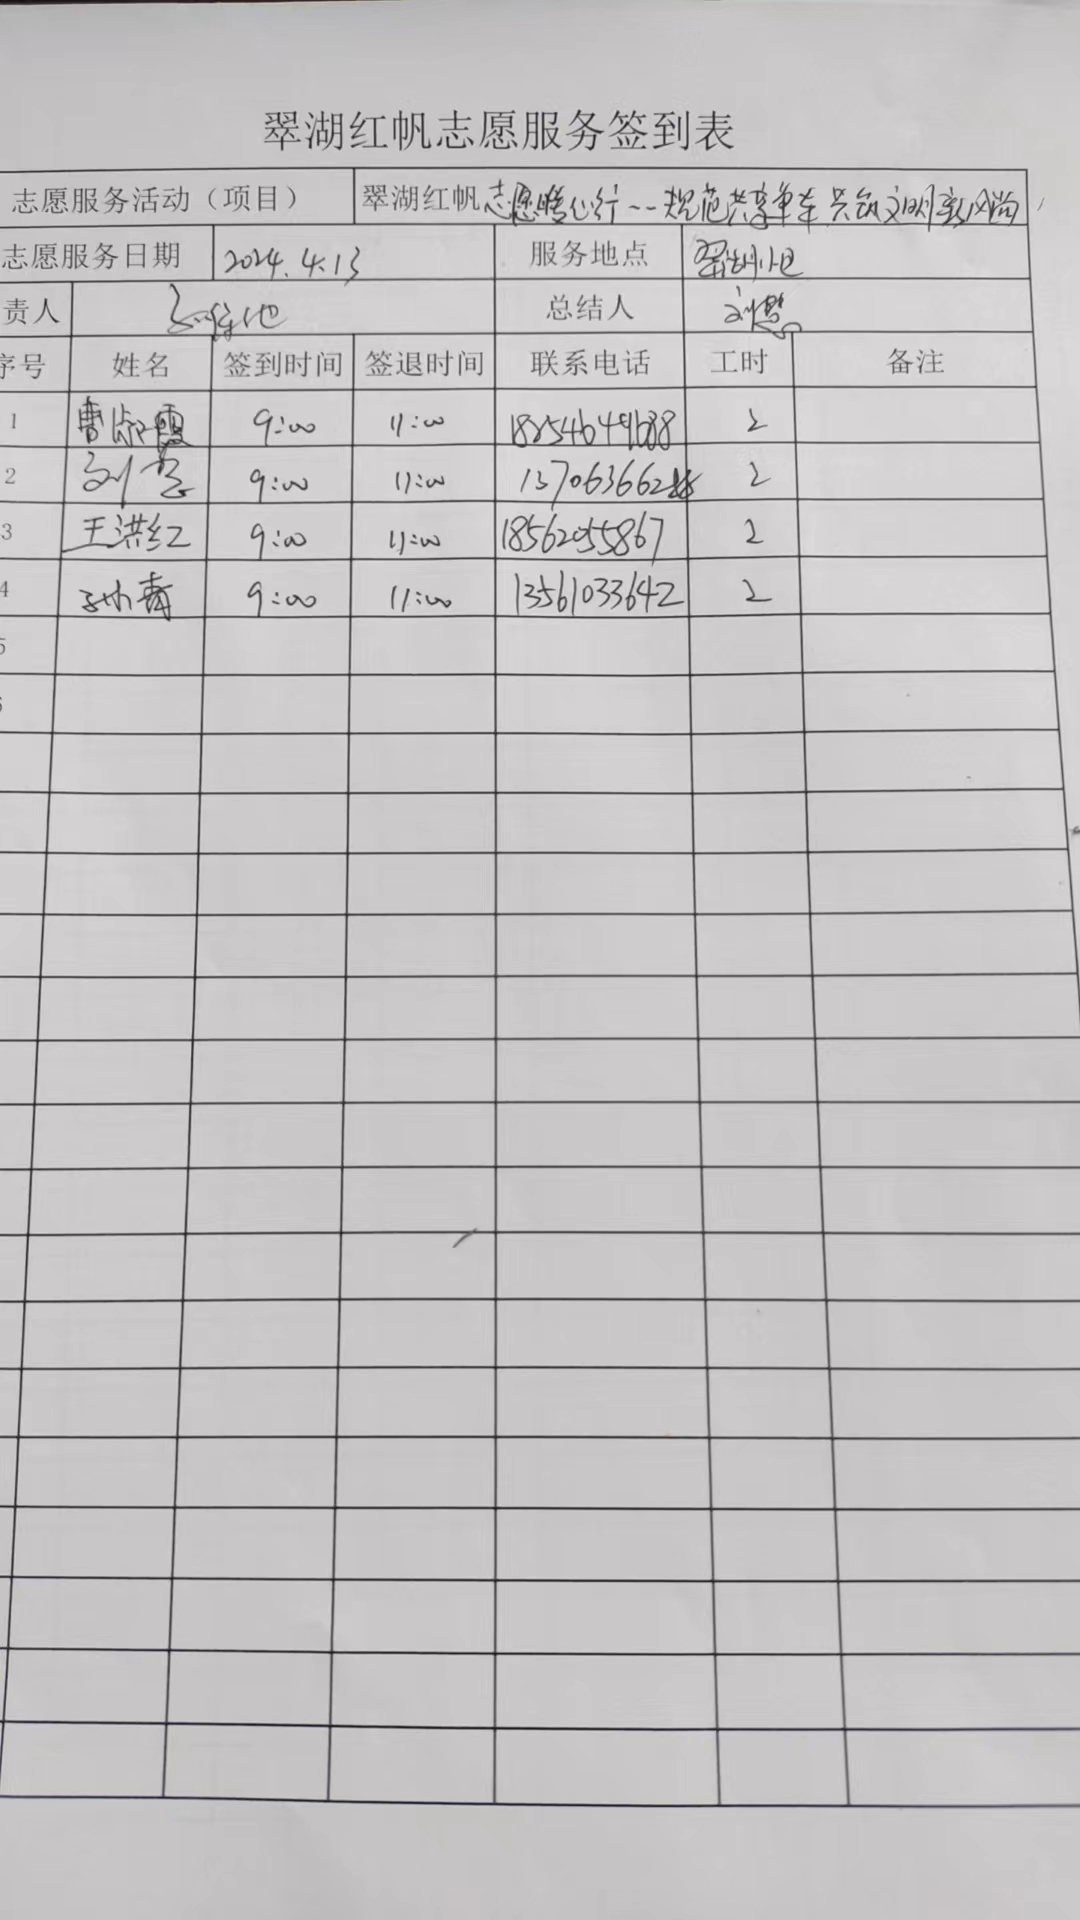 翠湖红帆志愿服务签到表
志愿服务活动（项目） 翠湖红帆志愿暖心行--规范共享单车 共筑文明新风尚
志愿服务日期 2024.4.13 服务地点 翠湖小区
责人 总结人 刘慧
序号 姓名 签到时间 签退时间 联系电话 工时 备注
1 曹淑霞 9:00 11:00 18254649688 2
2 刘 9:00 11:00 2
3 王洪红 9:00 11:00 18562055867 2
4 孙青 9:00 11:00 13561033642 2
5
6